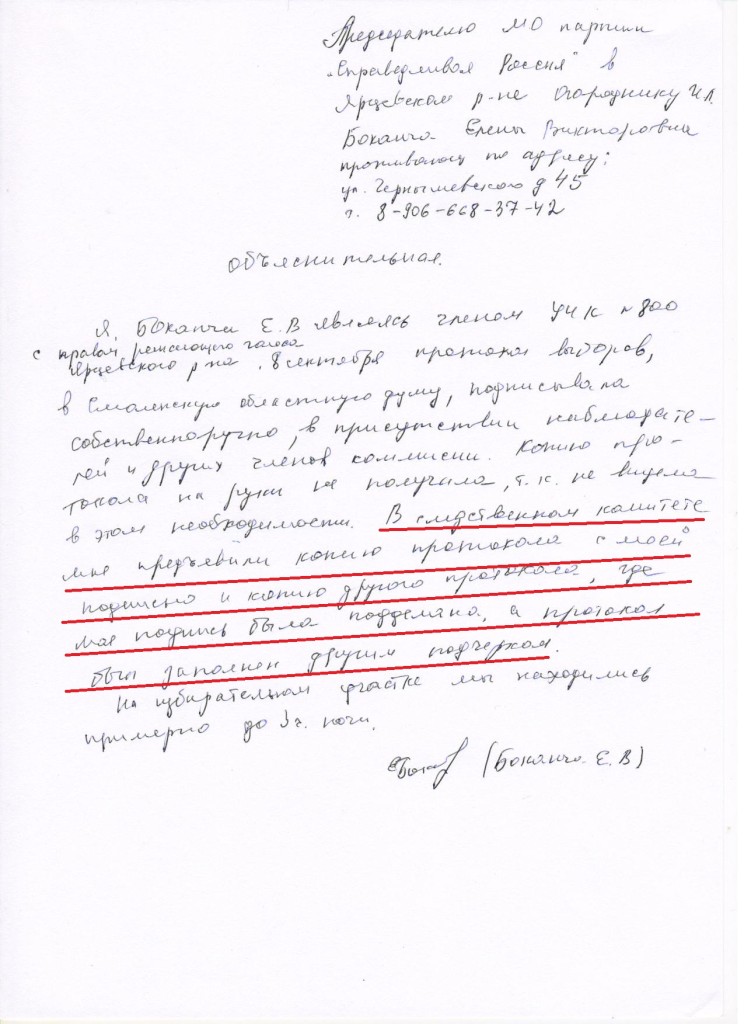 Председателю МО партии
"Справедливая Россия" в
Ярцевском р-не Огороднику И.Л.
Боканча Елены Викторовны
проживающ по адресу:
ул. Чернышевского д 45
т. 8-906-668-37-42
Объяснительная.
Я, Боканча Е.В являясь членом УЧК №800
с правом решающего голоса
Ярцевского р-на. 8 сентября протокол выборов,
в Смоленскую областную думу, подписывала
собственноручно, в присутствии наблюдате-
лей и других членов комиссии. Копию про-
токола на руки не получила, т.к. не видела
в этом необходимости. В следственном комитете
мне предъявили копию протокола с моей
подписью и копию другого протокола, где
моя подпись была подделана, а протокол
был заполнен другим подчерком.
На избирательном участке мы находились
примерно до 3 ч. ночи.
(Боканча Е.В)